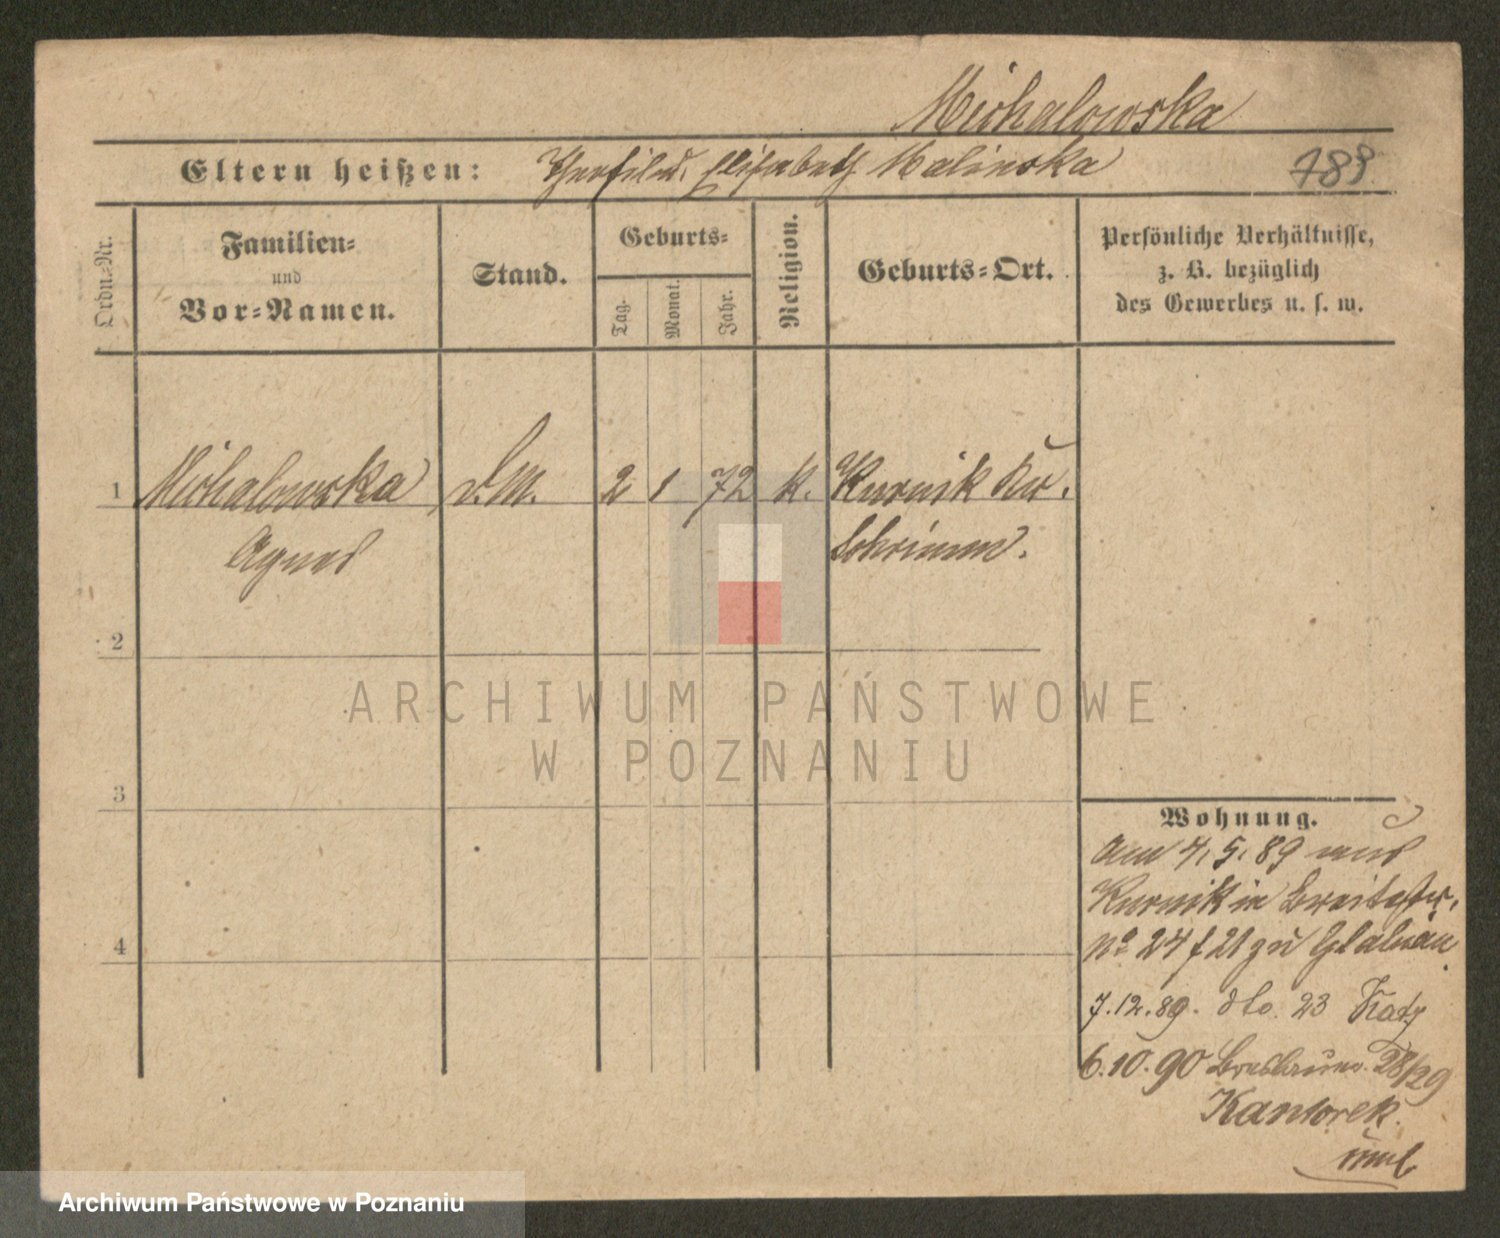 Michalowska
Eltern heißen: Theofil u. Elisabeth Malinska 789
Ordn.-Nr.
Familien-
und
Vor-Namen.
Stand.
Geburts-
Tag.
Monat.
Jahr.
Religion.
Geburts-Ort.
Persönliche Verhältnisse,
z. B. bezüglich
des Gewerbes u. s. w.
1 Michalowska, d.M. 2 1 72 K. Kurnik Kr.
Agnes Schrimm.
2
3
4
Wohnung.
Am 4.5.89 aus
Kurnik in Breitestr.
No 24 f 21 zu
7.12.89. dto. 23 Katz
6.10.90 Breslauer. 28/29
Kantorek.
ARCHIWUM PAŃSTWOWE
W POZNANIU
Archiwum Państwowe w Poznaniu